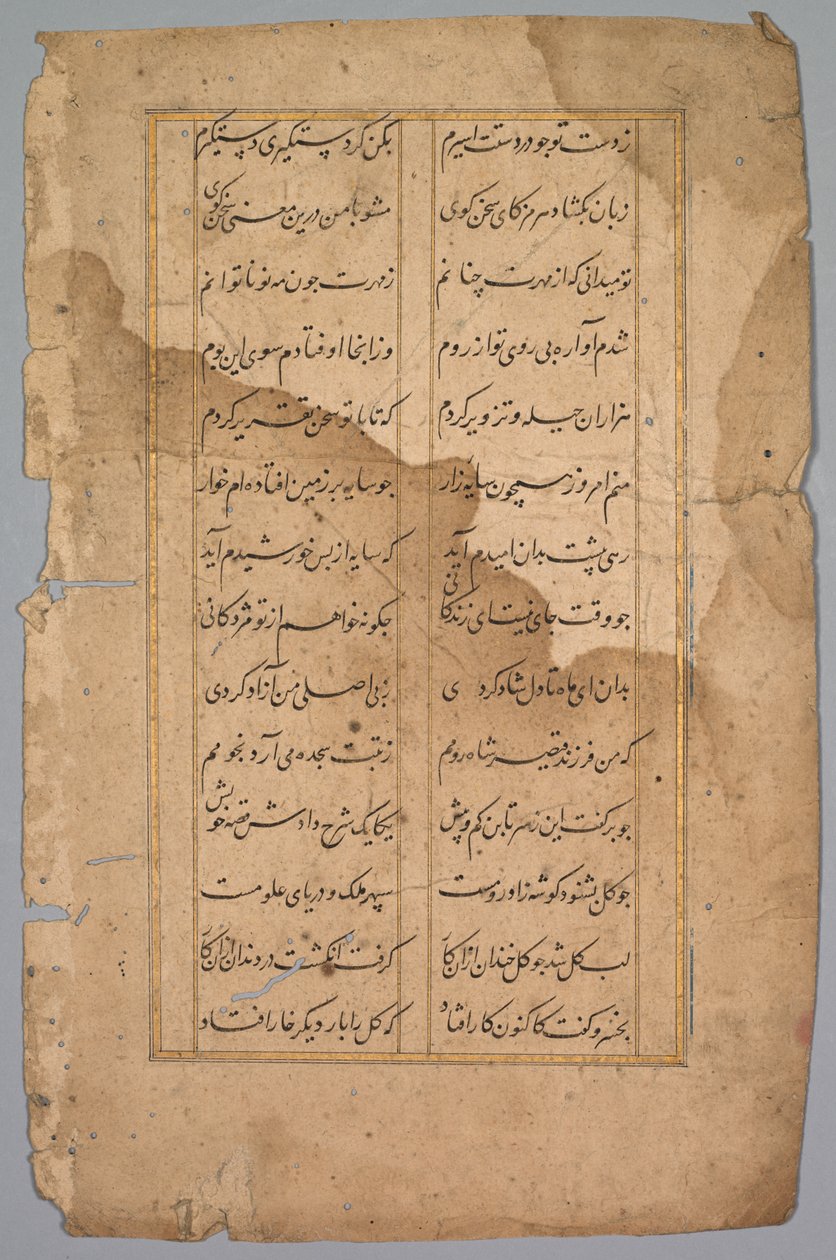 ز دست تو جو در دستت اسیرم بکن کر دستکیری دستکیرم
زبان بکشاد هرمز کای سخن کوی مشو با من درین معنی سخن کوی
تو میدانی که از مهرت چنانم ز مهرت جون مه نو ناتوانم
شدم آواره بی روی تو از روم وزانجا اوفتادم سوی این بوم
هزاران حیله و تزویر کردم که تا با تو سخن تقریر کردم
منم امروز همچون سایه زار جو سایه بر زمین افتاده ام خوار
رهی پشت بدان امیدم آید که سایه از بس خورشیدم آید
جو وقت جای نیست ای زندکانی جکونه خواهم از تو مژدکانی
بدان ای ماه تا دل شاد کردی ز بی اصلی من آزاد کردی
که من فرزند قیصر شاه رومم زتبت سجده می آرد نجومم
جو برکفت این ز سر تا بن کم و بیش یکایک شرح دادش قصه خویش
جو کل بشنود کو شهزاد رومست سپهر ملک و دریای علومست
لب کل شد جو کل خندان ازان کار کرفت انکشت در دندان ازان کار
بخسرو کفت کاکنون کار افتاد که کل را بار دیکر خار افتاد